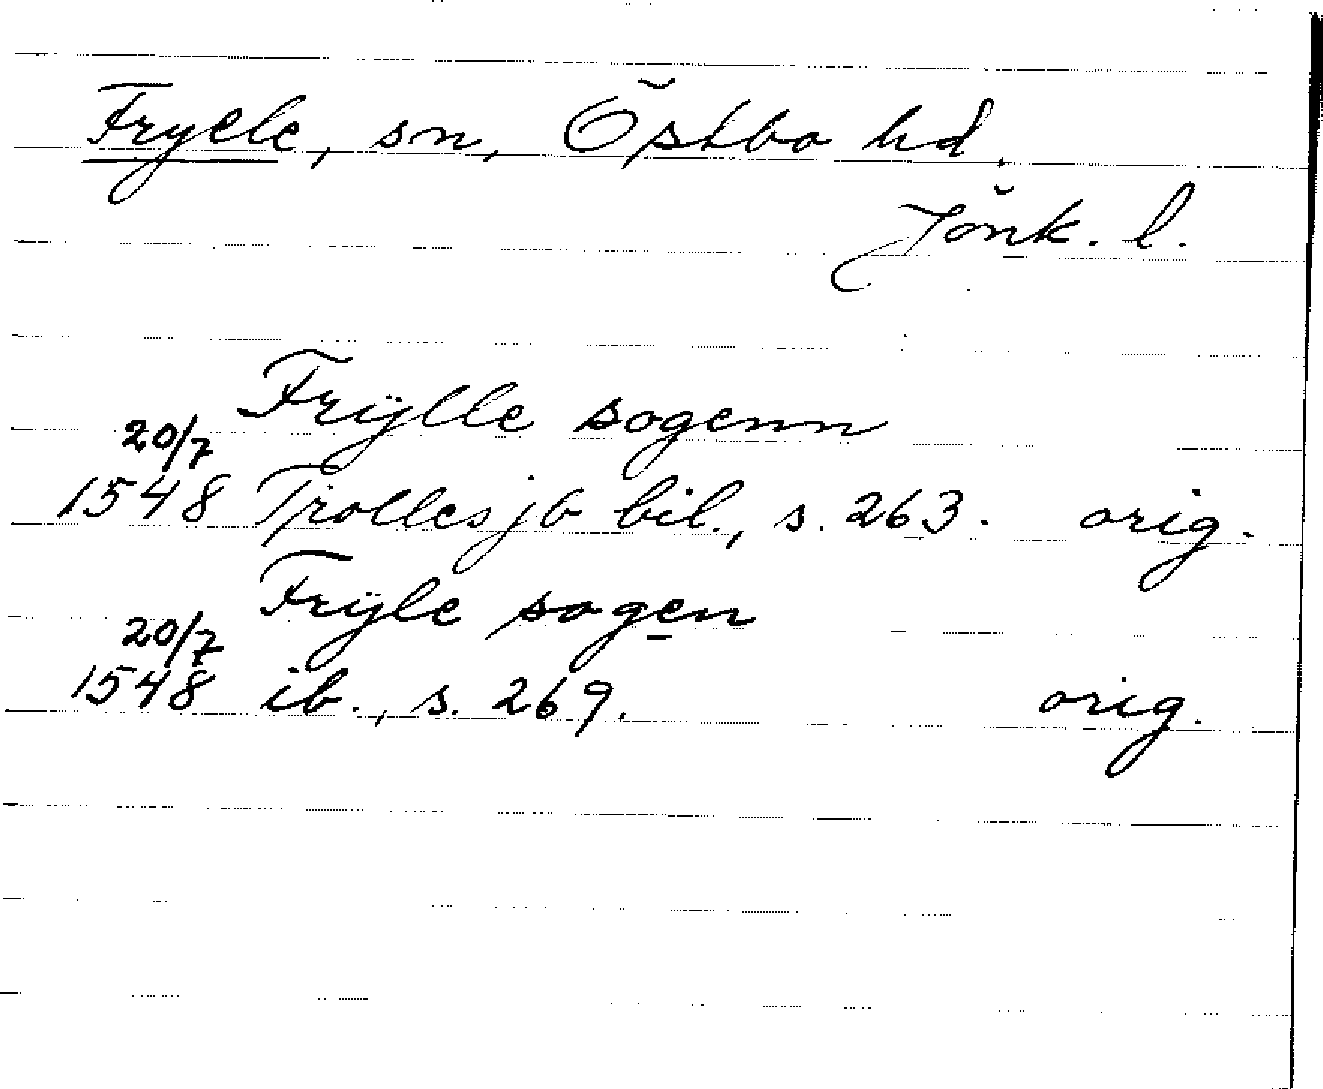 Frylle, sn, Östbo hd.
Jönk. l.
Frÿlle sogenn
20/7
1548 Trolles jb bil., s. 263. orig.
Frÿle sogen
20/7
1548 ib., s. 269. orig.